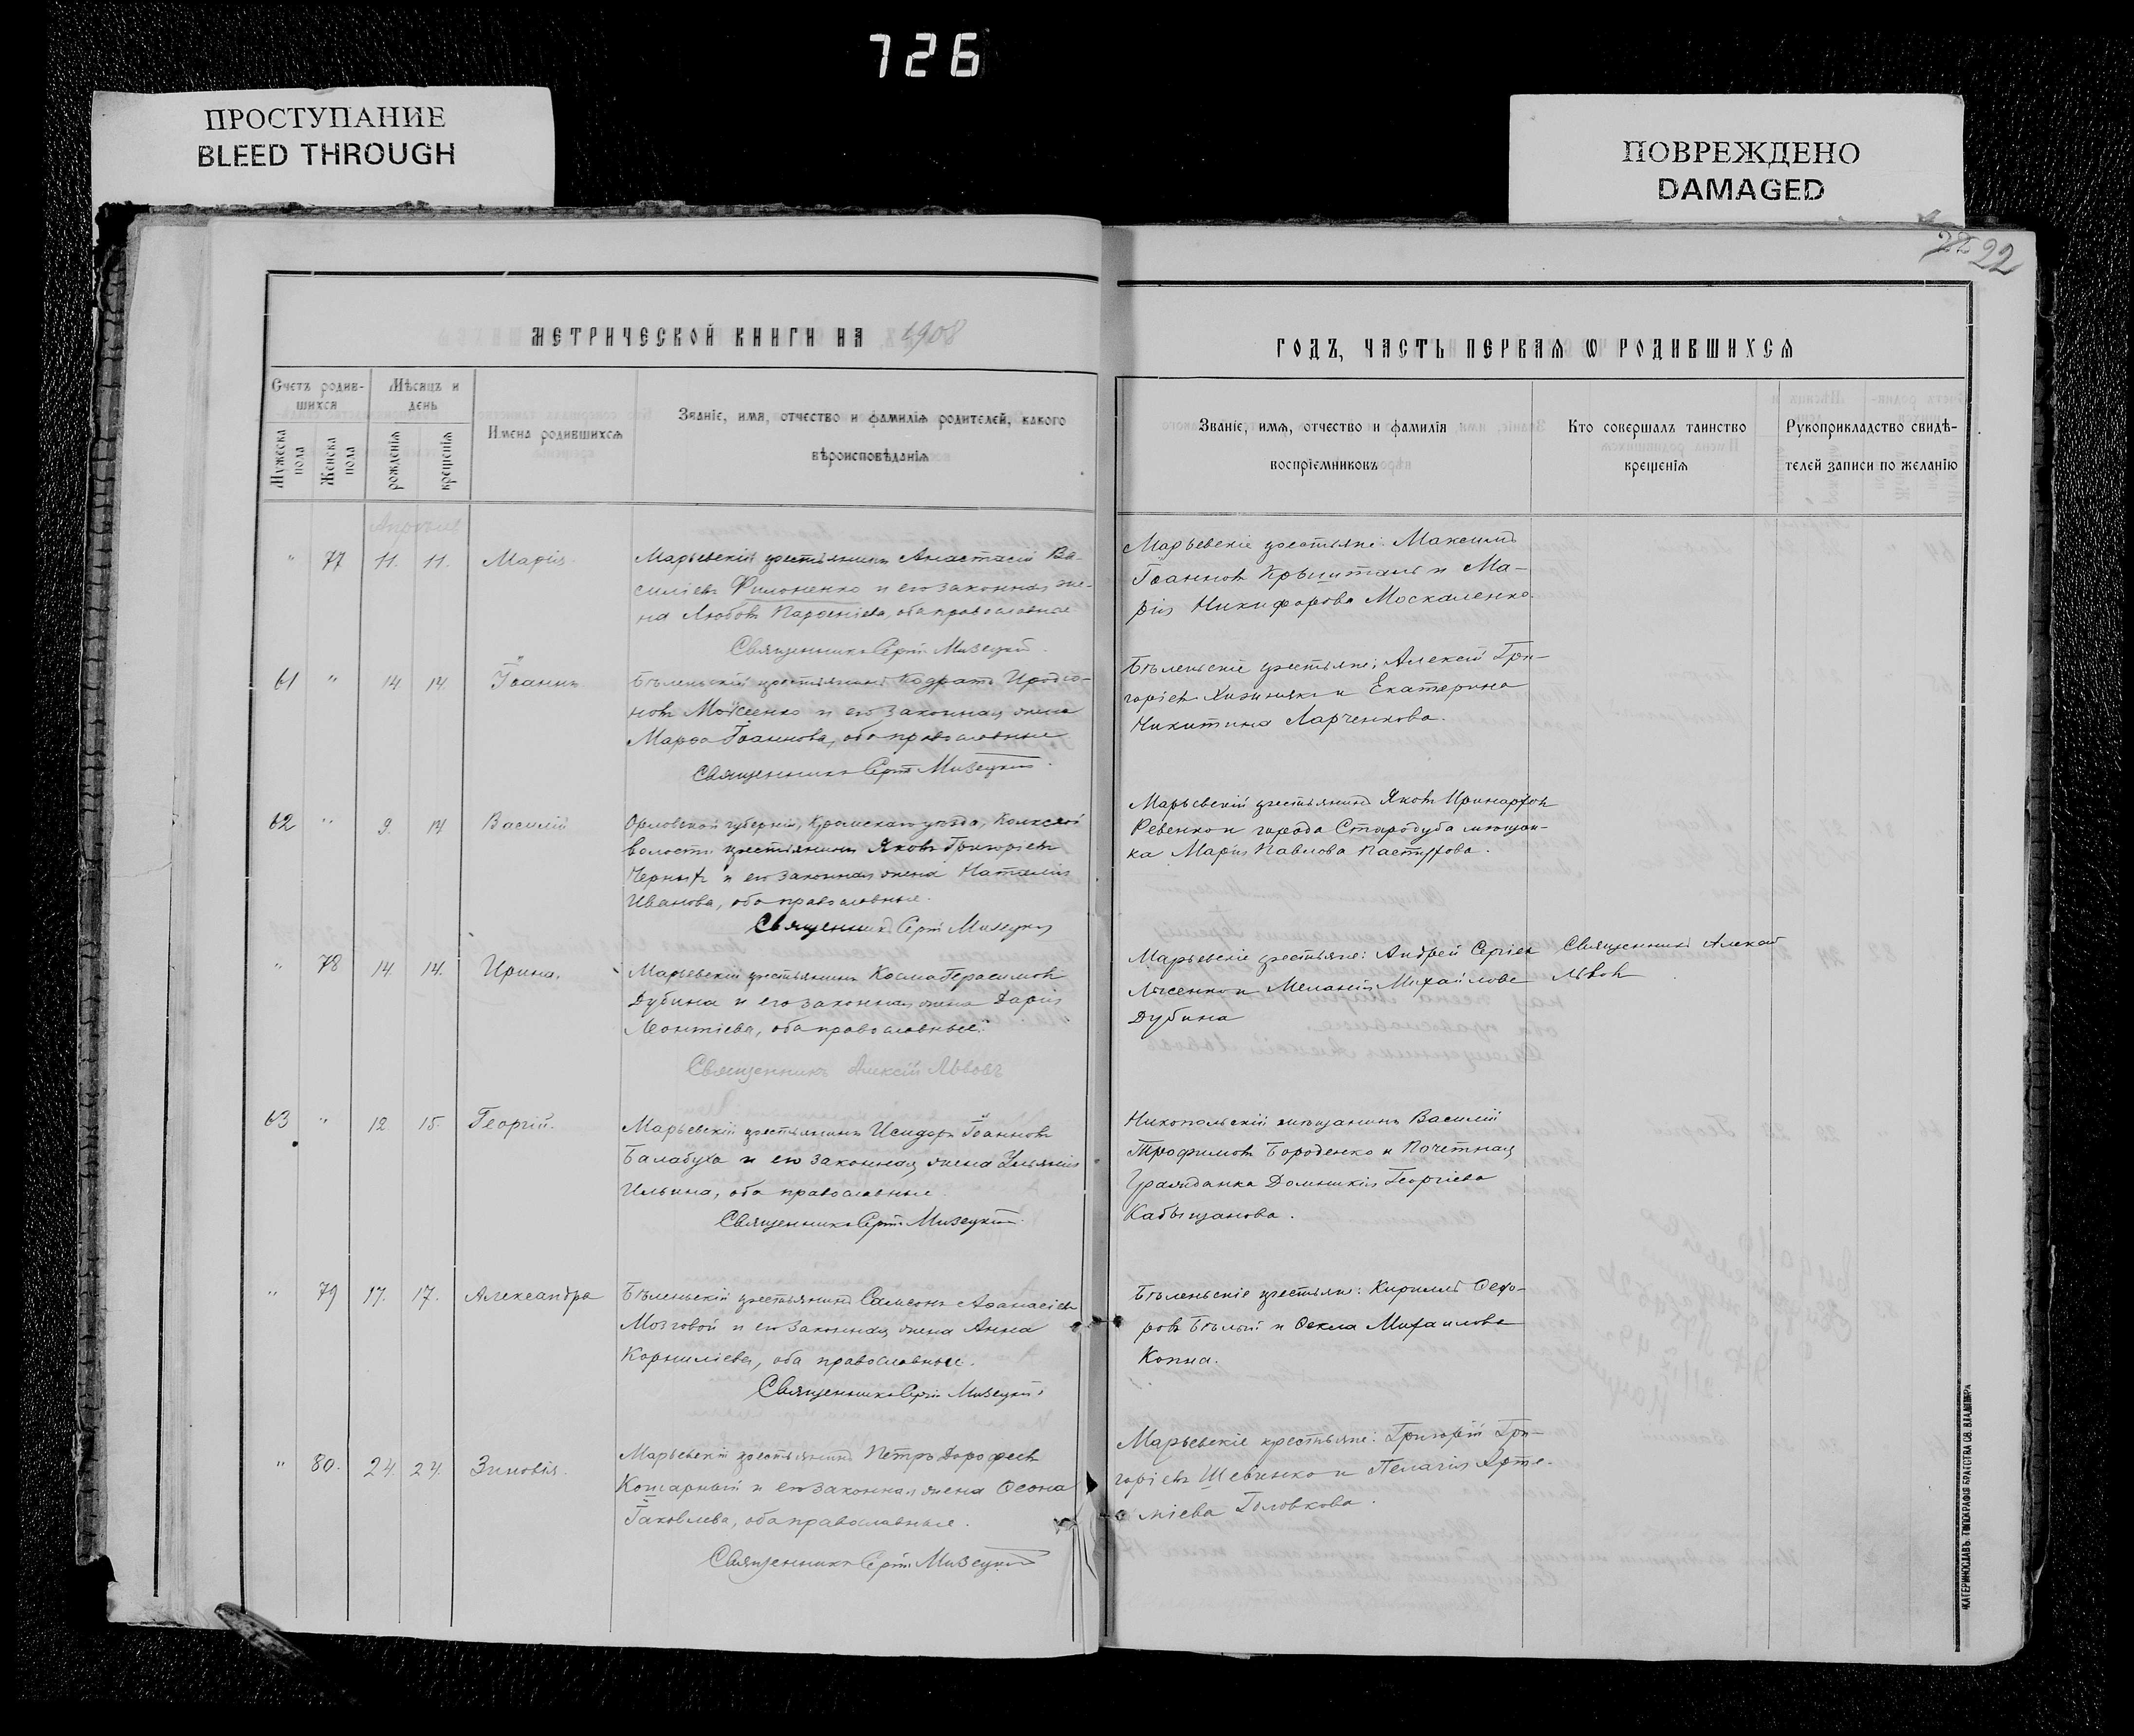 726
ПРОСТУПАНИЕ
BLEED THROUGH
ПОВРЕЖДЕНО
DAMAGED
22 22
МЕТРИЧЕСКОЙ КНИГИ НА 1908
ГОДЪ, ЧАСТЬ ПЕРВАЯ Ѡ РОДИВШИХСЯ
Счетъ родив-
шихся
Мѣсяцъ и
день
Мужеска
пола
Женска
пола
рожденія
крещенія
Имена родившихся
Званіе, имя, отчество и фамилія родителей, какого
вѣроисповѣданія
Званіе, имя, отчество и фамилія
воспріемниковъ
Кто совершалъ таинство
крещенія
Рукоприкладство свидѣ-
телей записи по желанію
" 77 11. 11. Марія.
Марьевскій крестьянинъ Анастасій Ва-
силіевъ Филоненко и его законная же-
на Любовь Парѳеніева, оба православные
Священникъ Сергій Мизецкій.
Марьевскіе крестьяне: Максимъ
Іоанновъ Крышталь и Ма-
рія Никифорова Москаленко.
61 " 14. 14. Іоаннъ
Бѣленьскій крестьянинъ Кодратъ Иродіо-
новъ Моісеенко и его законная жена
Марѳа Іоаннова, оба православные
Священникъ Сергій Мизецкій.
Бѣленьскіе крестьяне: Алексій Гри-
горіевъ и Екатерина
Никитина Ларченкова.
62 " 9. 14 Василій
Орловской губерніи, Кромскаго уѣзда,
волости крестьянинъ Яковъ Григоріевъ
Черныхъ и его законная жена Наталія
Иванова, оба православные.
Священникъ Сергій Мизецкій
Марьевскій крестьянинъ Яковъ Иринархов
Ревенко и города Стародуба мѣщан-
ка Марія Павлова Пастухова.
" 78 14 14. Ирина.
Марьевскій крестьянинъ Косма Герасимовъ
Дубина и его законная жена Дарія
Леонтіева, оба православные.
Священникъ Алексій Львовъ
Марьевскіе крестьяне: Андрей Сергіев
Лысенко и Меланія Михайлова
Дубина
Священникъ Алексій
Львовъ
63 " 12 15. Георгій.
Марьевскій крестьянинъ Исидоръ Іоанновъ
Балабуха и его законная жена Ульянія
Ильина, оба православные
Священникъ Сергій Мизецкій.
Никопольскій мѣщанинъ Василій
Трофимовъ Бороденко и Почетная
Гражданка Домникія Георгіева
Кабыщанова.
" 79 17. 17. Александра
Бѣленьскій крестьянинъ Самсонъ Аѳанасіевъ
Мозговой и его законная жена Анна
Корниліева, оба православные.
Священникъ Сергій Мизецкій.
Бѣленьскіе крестьяне: Кириллъ Ѳедо-
ровъ Бѣлый и Ѳекла Михаилова
Копна.
" 80. 24. 24. Зиновія.
Марьевскій крестьянинъ Петръ Дорофеевъ
Кошарный и его законная жена Ѳеона
Іаковлева, оба православные.
Священникъ Сергій Мизецкій
Марьевскіе крестьяне: Григорій Гри-
горіевъ Шевченко и Пелагія Арте-
міева Головкова.
ЕКАТЕРИНОСЛАВЪ. ТИПОГРАФІЯ БРАТСТВА СВ. ВЛАДИМІРА